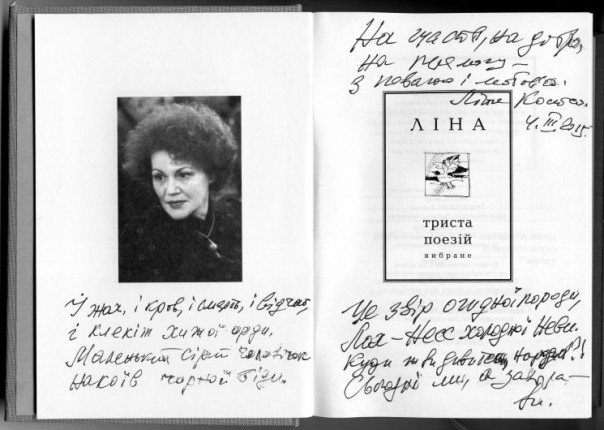 І жах, і кров, і смерть, і відчай,
і клекіт хижої орди.
Маленький сірий чоловічок
накоїв чорної біди.
На щастя, на добро,
на перемогу –
з повагою і любов'ю.
Ліна Костенко
4. III 2015
ЛІНА
триста
поезій
вибране
Це звір огидної породи,
Лох-Несс холодної Неви.
Куди ж ви дивитесь, народи?!
Сьогодні ми, а завтра –
ви.